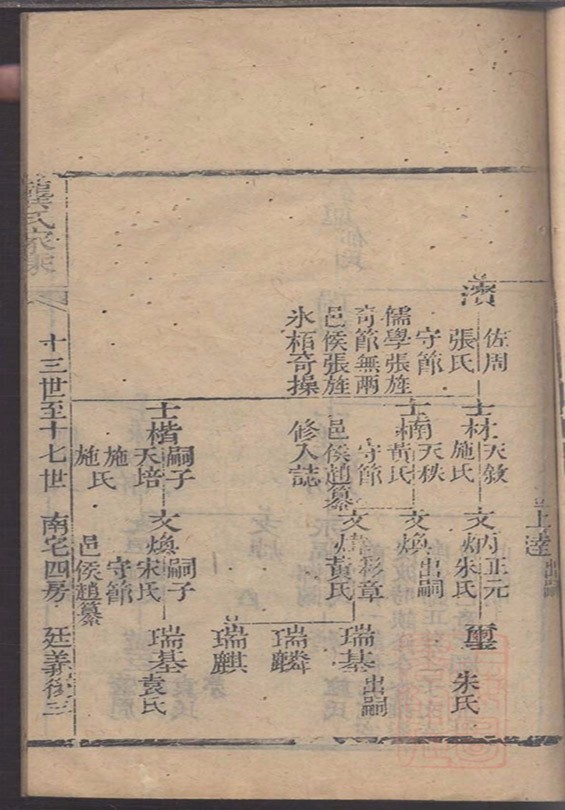 上達 出嗣
濟
佐周
張氏
守節
儒學張旌
奇節無兩
邑侯張旌
氷栢奇操
士材
天敘
施氏
士楠
天秩
黃氏
守節
邑侯趙纂
修入誌
士楷
嗣子
天培
施氏
施氏
文炳
正元
朱氏
文煥
出嗣
文煒
彩章
黃氏
文煥
嗣子
宋氏
守節
邑侯趙纂
璽
朱氏
瑞基
出嗣
瑞麟
瑞麒
瑞基
袁氏
龔氏家乘
十三世至十七世 南宅四房 廷義後三